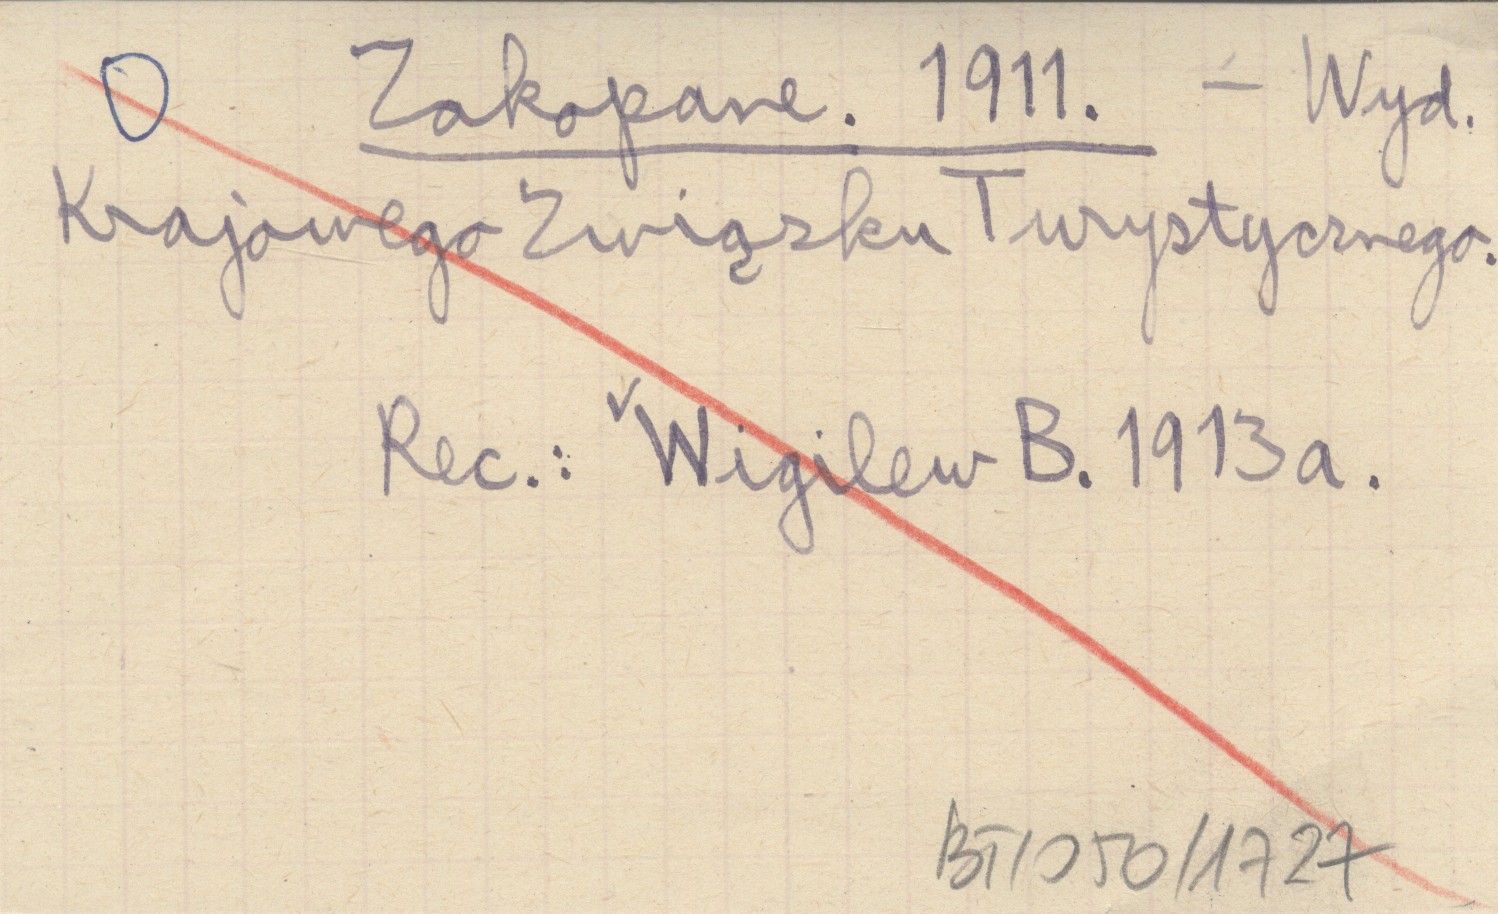 O Zakopane. 1911. – Wyd.
Krajowego Związku Turystycznego.
Rec.: Wigilew B. 1913a.
BT/050/1727